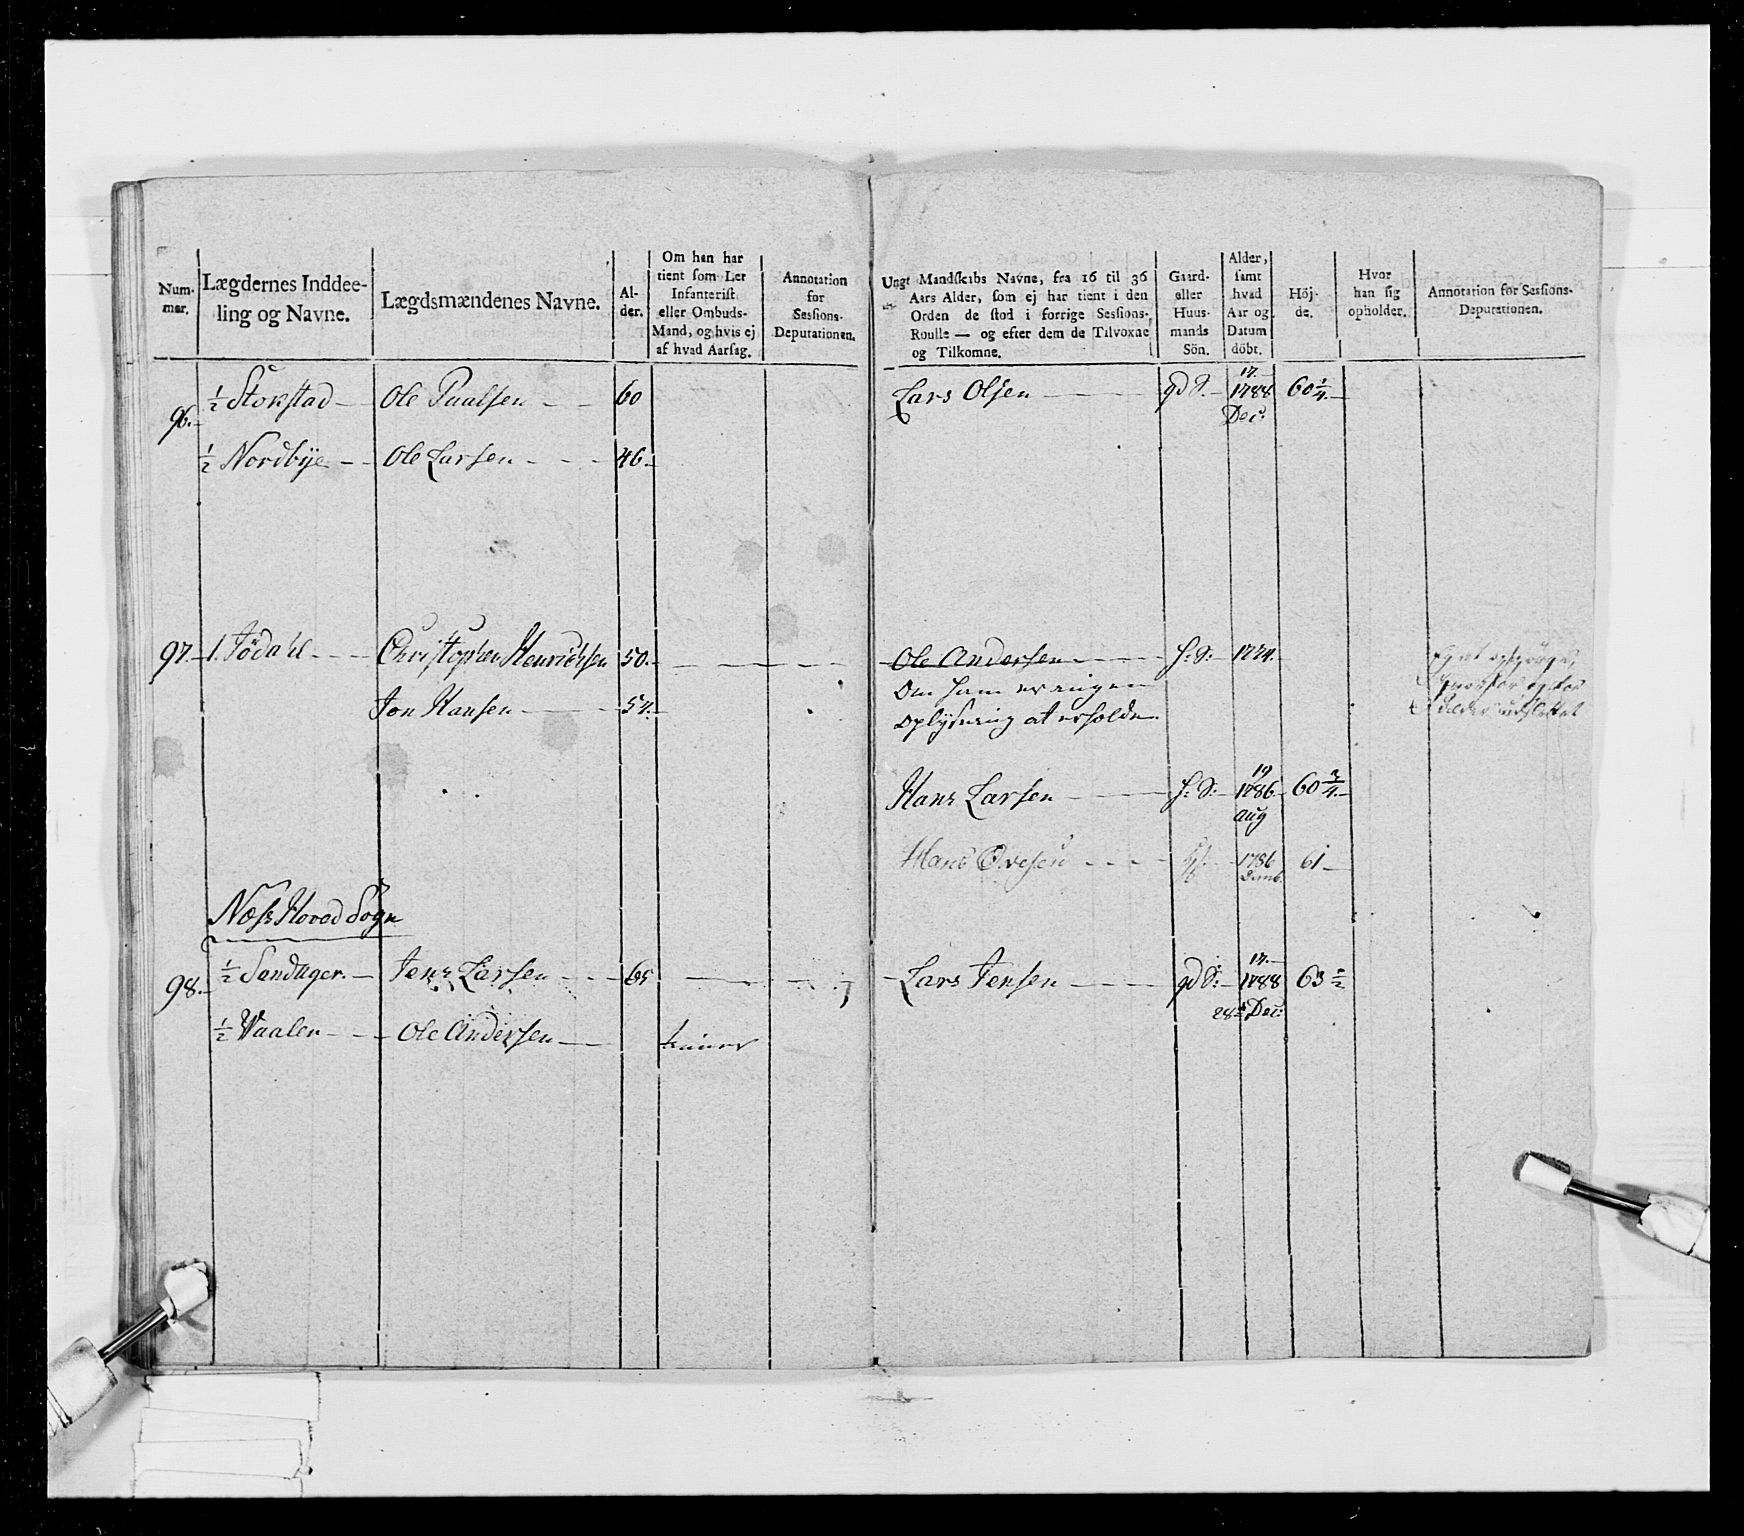 Num-
mer.
Lægdernes Inddee-
ling og Navne.
Lægdsmændenes Navne.
Al-
der.
Om han har
tient som Let
Infanterist
eller Ombuds-
Mand, og hvis ej
af hvad Aarsag.
Annotation
for
Sessions-
Deputationen.
Ungt Mandskabs Navne, fra 16 til 36
Aars Alder, som ej har tient i den
Orden de stod i forrige Sessions-
Roulle — og efter dem de Tilvoxne
og Tilkomne.
Gaard-
eller
Huus-
mands
Sön.
Alder,
samt
hvad
Aar og
Datum
döbt.
Höj-
de.
Hvor
han sig
opholder.
Annotation for Sessions-
Deputationen.
96. ½ Stokstad Ole Paulsen 60 Lars Olsen gd S. 17. 1788 Dec: 60 ¼
½ Nordbye Ole Larsen 46.
97. 1. Jödahl Christopher Henrichsen 50. Ole Andersen h: S: 1774.
Om ham er ingen
oplysning at erholde.
Jon Hansen 54.
Hans Larsen h: S: 19 1786 aug 60 ¾
Hans Ovesen 1786 61
Næss Hoved Sogn
98. ½ Sandager. Jens Larsen 65 Lars Jensen gd S: 17. 1788 28 Dec: 63 ½
½ Vaalen Ole Andersen